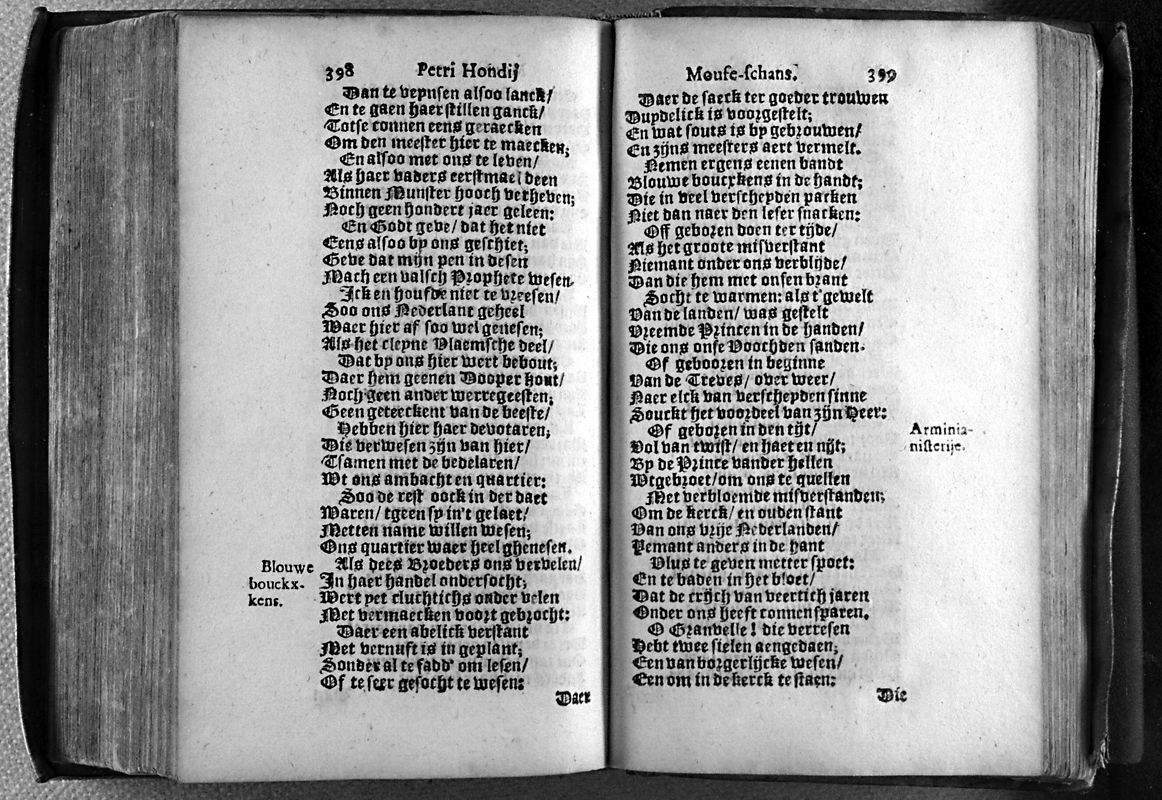 398 Petri Hondij
Van te veynsen alsoo lanck/
En te gaen haer stillen ganck/
Totse connen eens geraecken
Om den meester hier te maecken;
En alsoo met ons te leven/
Als haer vaders eerstmael deen
Binnen Munster hooch verheven;
Noch geen hondert jaer geleen:
En Godt geve/ dat het niet
Eens alsoo by ons geschiet;
Geve dat mijn pen in desen
Mach een valsch Prophete wesen.
Ick en houfde niet te vreesen/
Soo ons Nederlant geheel
Waer hier af soo wel genesen;
Als het cleyne Vlaemsche deel/
Dat by ons hier wert bebout;
Daer hem geenen Dooper hout/
Noch geen ander werregeesten;
Geen geteeckent van de beeste/
Hebben hier haer devotaren;
Die verwesen zijn van hier/
Tsamen met de bedelaren/
Wt ons ambacht en quartier:
Soo de rest oock in der daet
Waren/ tgeen sy in't gelaet/
Metten name willen wesen;
Ons quartier waer heel ghenesen.
Als dees Broeders ons vervelen/
In haer handel ondersocht;
Wert yet cluchtichs onder velen
Met vermaecken voort gebrocht:
Daer een abelick verstant
Met vernuft is in geplant;
Sonder al te sadd' om lesen/
Of te seer gesocht te wesen:
Daer
Blouwe
bouckx-
kens.
Mouse-schans. 399
Daer de saeck ter goeder trouwen
Duydelick is voorgestelt;
En wat souts is by gebrouwen/
En zijns meesters aert vermelt.
Nemen ergens eenen bandt
Blouwe bouckkens in de handt;
Die in veel verscheyden packen
Niet dan naer den leser snacken:
Off geboren doen ter tijde/
Als het groote misverstant
Niemant onder ons verblijde/
Dan die hem met onsen brant
Socht te warmen: als t'gewelt
Van de landen/ was gestelt
Vreemde Princen in de handen/
Die ons onse Voochden sanden.
Of gebooren in beginne
Van de Treves/ over weer/
Naer elck van verscheyden sinne
Souckt het voordeel van zijn Heer:
Of geboren in den tijt/
Vol van twist/ en haet en nijt;
By de Prince vander hellen
Wtgebroet/ om ons te quellen
Met verbloemde misverstanden;
Om de kerck/ en ouden stant
Van ons vrije Nederlanden/
Yemant anders in de hant
Vlus te geven metter spoet:
En te baden in het bloet/
Dat de crijch van veertich jaren
Onder ons heeft connen sparen.
O Granvelle! die verresen
Hebt twee sielen aengedaen;
Een van borgerlijcke wesen/
Een om in de kerck te staen:
Die
Arminia-
nisterije.